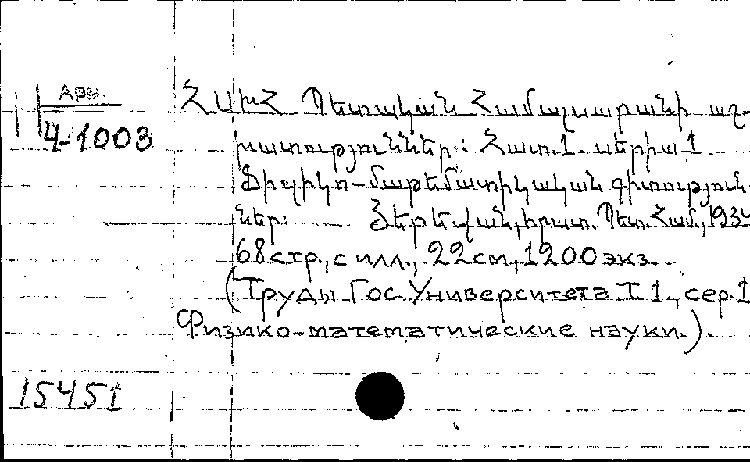 Арм.
4-1003
ՀՍԽՀ Պետական Համալսարանի աշ-
խատություններ: Հատ. 1. սերիա 1
Ֆիզիկո-մաթեմատիկական գիտություն-
ներ: Յերեվան, հրատ. Պետ. Համ., 193
68 стр., с илл., 22 см, 1200 экз.
(Труды Гос. Университета Т 1., сер. 1
Физико-математические науки.).
15451